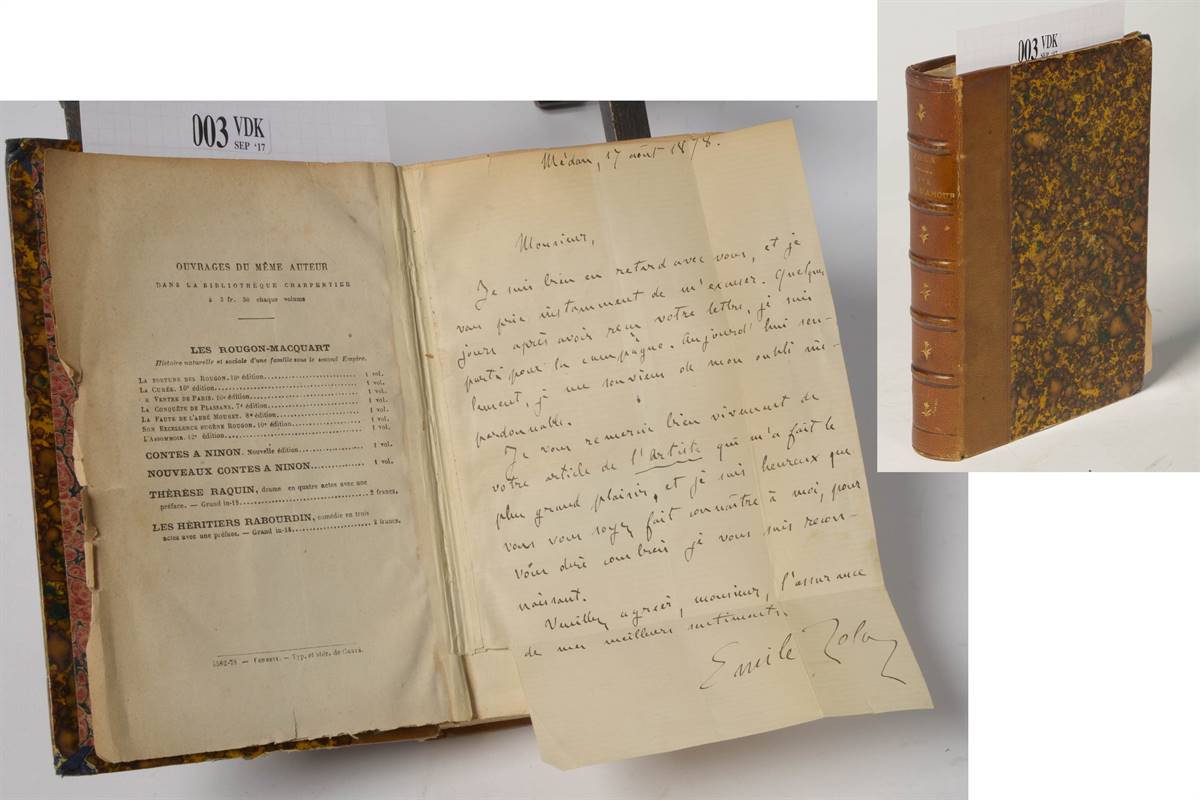 003 VDK
SEP '17
OUVRAGES DU MÊME AUTEUR
DANS LA BIBLIOTHÈQUE CHARPENTIER
à 3 fr. 50 chaque volume
LES ROUGON-MACQUART
Histoire naturelle et sociale d'une famille sous le second Empire.
LA FORTUNE DES ROUGON. 10e édition 1 vol.
LA CURÉE. 10e édition 1 vol.
E VENTRE DE PARIS. 10e édition 1 vol.
LA CONQUÊTE DE PLASSANS. 7e édition 1 vol.
LA FAUTE DE L'ABBÉ MOURET. 8e édition 1 vol.
SON EXCELLENCE EUGÈNE ROUGON. 10e édition 1 vol.
L'ASSOMMOIR. 12e édition 1 vol.
CONTES A NINON. Nouvelle édition 1 vol.
NOUVEAUX CONTES A NINON 1 vol.
THÉRÈSE RAQUIN, drame en quatre actes avec une
préface. — Grand in-18 2 francs.
LES HÉRITIERS RABOURDIN, comédie en trois
actes avec une préface. — Grand in-18 2 francs.
— Typ. et stér. de
Médan, 17 août 1878.
Monsieur,
Je suis bien en retard avec vous, et je
vous prie instamment de m'excuser. Quelques
jours après avoir reçu votre lettre, je suis
parti pour la campagne. Aujourd'hui seu-
lement, je me souviens de mon oubli im-
pardonnable.
Je vous remercie bien vivement de
votre article de l'Artiste qui m'a fait le
plus grand plaisir, et je suis heureux que
vous vous soyez fait connaître à moi, pour
vous dire combien je vous suis recon-
naissant.
Veuillez agréer, monsieur, l'assurance
de mes meilleurs sentiments.
Emile Zola
003 VDK
SEP '17
AMOUR